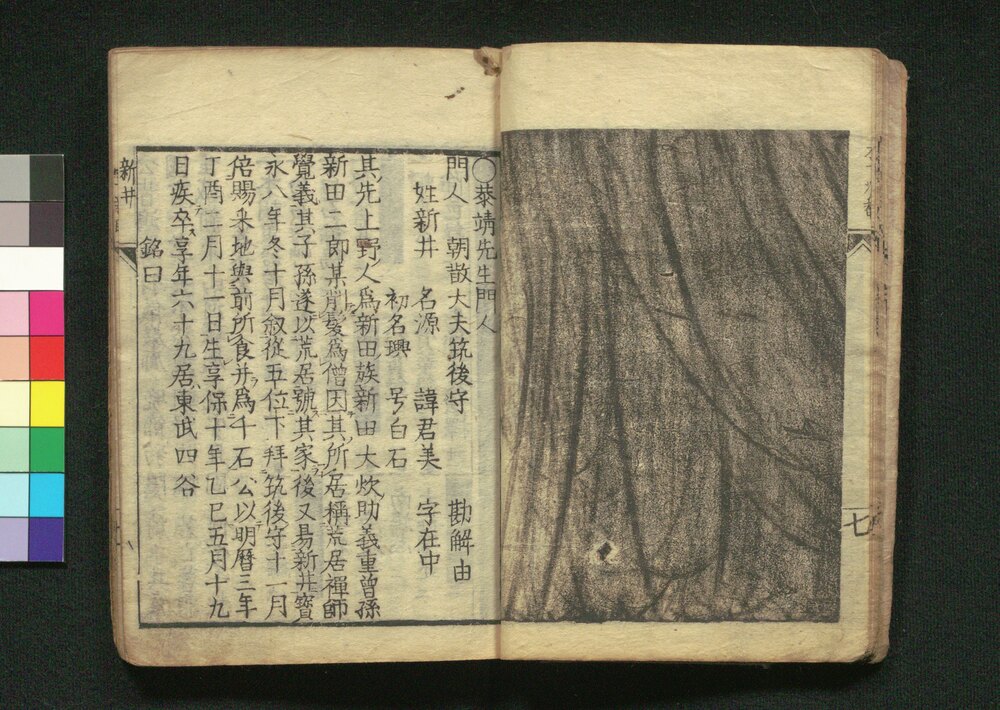 七
〇恭靖先生門人
門人 朝散大夫筑後守 勘解由
姓新井 名源 諱君美 字在中
初名璵 号白石
其先上野人爲新田族新田大炊助義重曾孫
新田二郎某削髮爲僧因其所居稱荒居禪師
覺義其子孫遂以荒居號其家後又易新井寳
永八年冬十月叙從五位下拜筑後守十一月
倍賜采地與前所食并爲千石公以明曆三年
丁酉二月十一日生享保十年乙巳五月十九
日疾卒享年六十九居東武四谷
銘曰
新井